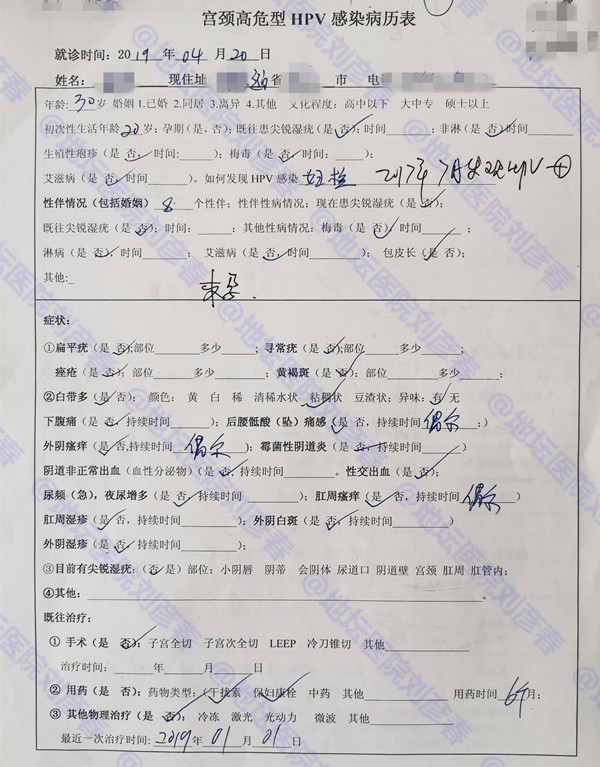 宫颈高危型 HPV 感染病历表
就诊时间：2019 年 04 月 20 日
姓名： 现住址 省 市 电
年龄: 30 岁 婚姻 1.已婚 2.同居 3.离异 4.其他 文化程度：高中以下 大中专 硕士以上
初次性生活年龄 20 岁；孕期(是，否)；既往患尖锐湿疣(是 否)；时间______；非淋(是 否)时间______
生殖性疱疹(是 否，时间:______)；梅毒(是 否，时间：______)；
艾滋病(是 否，时间______)。如何发现 HPV 感染 妇检 2017年 7月发现HPV ⊕
性伴情况（包括婚姻） 8 个性伴；性伴性病情况：现在患尖锐湿疣(是 否)；
既往尖锐湿疣(是 否)，时间：______；其他性病情况：梅毒(是 否)，时间______；
淋病(是 否)，时间______；艾滋病(是 否，时间______)；包皮长(是 否)；
其他:_ 未孕.
症状：
①扁平疣(是 否);部位______多少______；寻常疣(是 否);部位______多少______；
痤疮(是 否)；部位______多少______；黄褐斑(是 否)；部位______多少______；
②白带多(是 否)； 颜色： 黄 白 稀 清稀水状 粘稠状 豆渣状；异味：有 无
下腹痛(是 否，持续时间______)；后腰骶酸（坠）痛感(是 否，持续时间 偶尔 ;)
外阴瘙痒(是 否,持续时间 偶尔 )；霉菌性阴道炎(是 否，持续时间______)
阴道非正常出血（血性分泌物）(是 否，持续时间______。性交出血(是 否)；
尿频（急），夜尿增多(是 否，持续时间______)；肛周瘙痒(是 否，持续时间 偶尔 )
肛周湿疹(是 否，持续时间______)；外阴白斑(是 否，持续时间______)
外阴湿疹(是 否，持续时间______)；
③目前有尖锐湿疣:（否/是）部位：小阴唇 阴蒂 会阴体 尿道口 阴道壁 宫颈 肛周 肛管内；
④其他：______。
既往治疗：
① 手术(是 否)：子宫全切 子宫次全切 LEEP 冷刀锥切 其他______
治疗时间：______年______月______日
② 用药(是 否)：药物类型:(干扰素 保妇康栓 中药 其他______ 用药时间 6个月；
③ 其他物理治疗(是 否)：冷冻 激光 光动力 微波 其他______
最近一次治疗时间: 2019 年 01 月 01 日
@地坛医院刘彦春